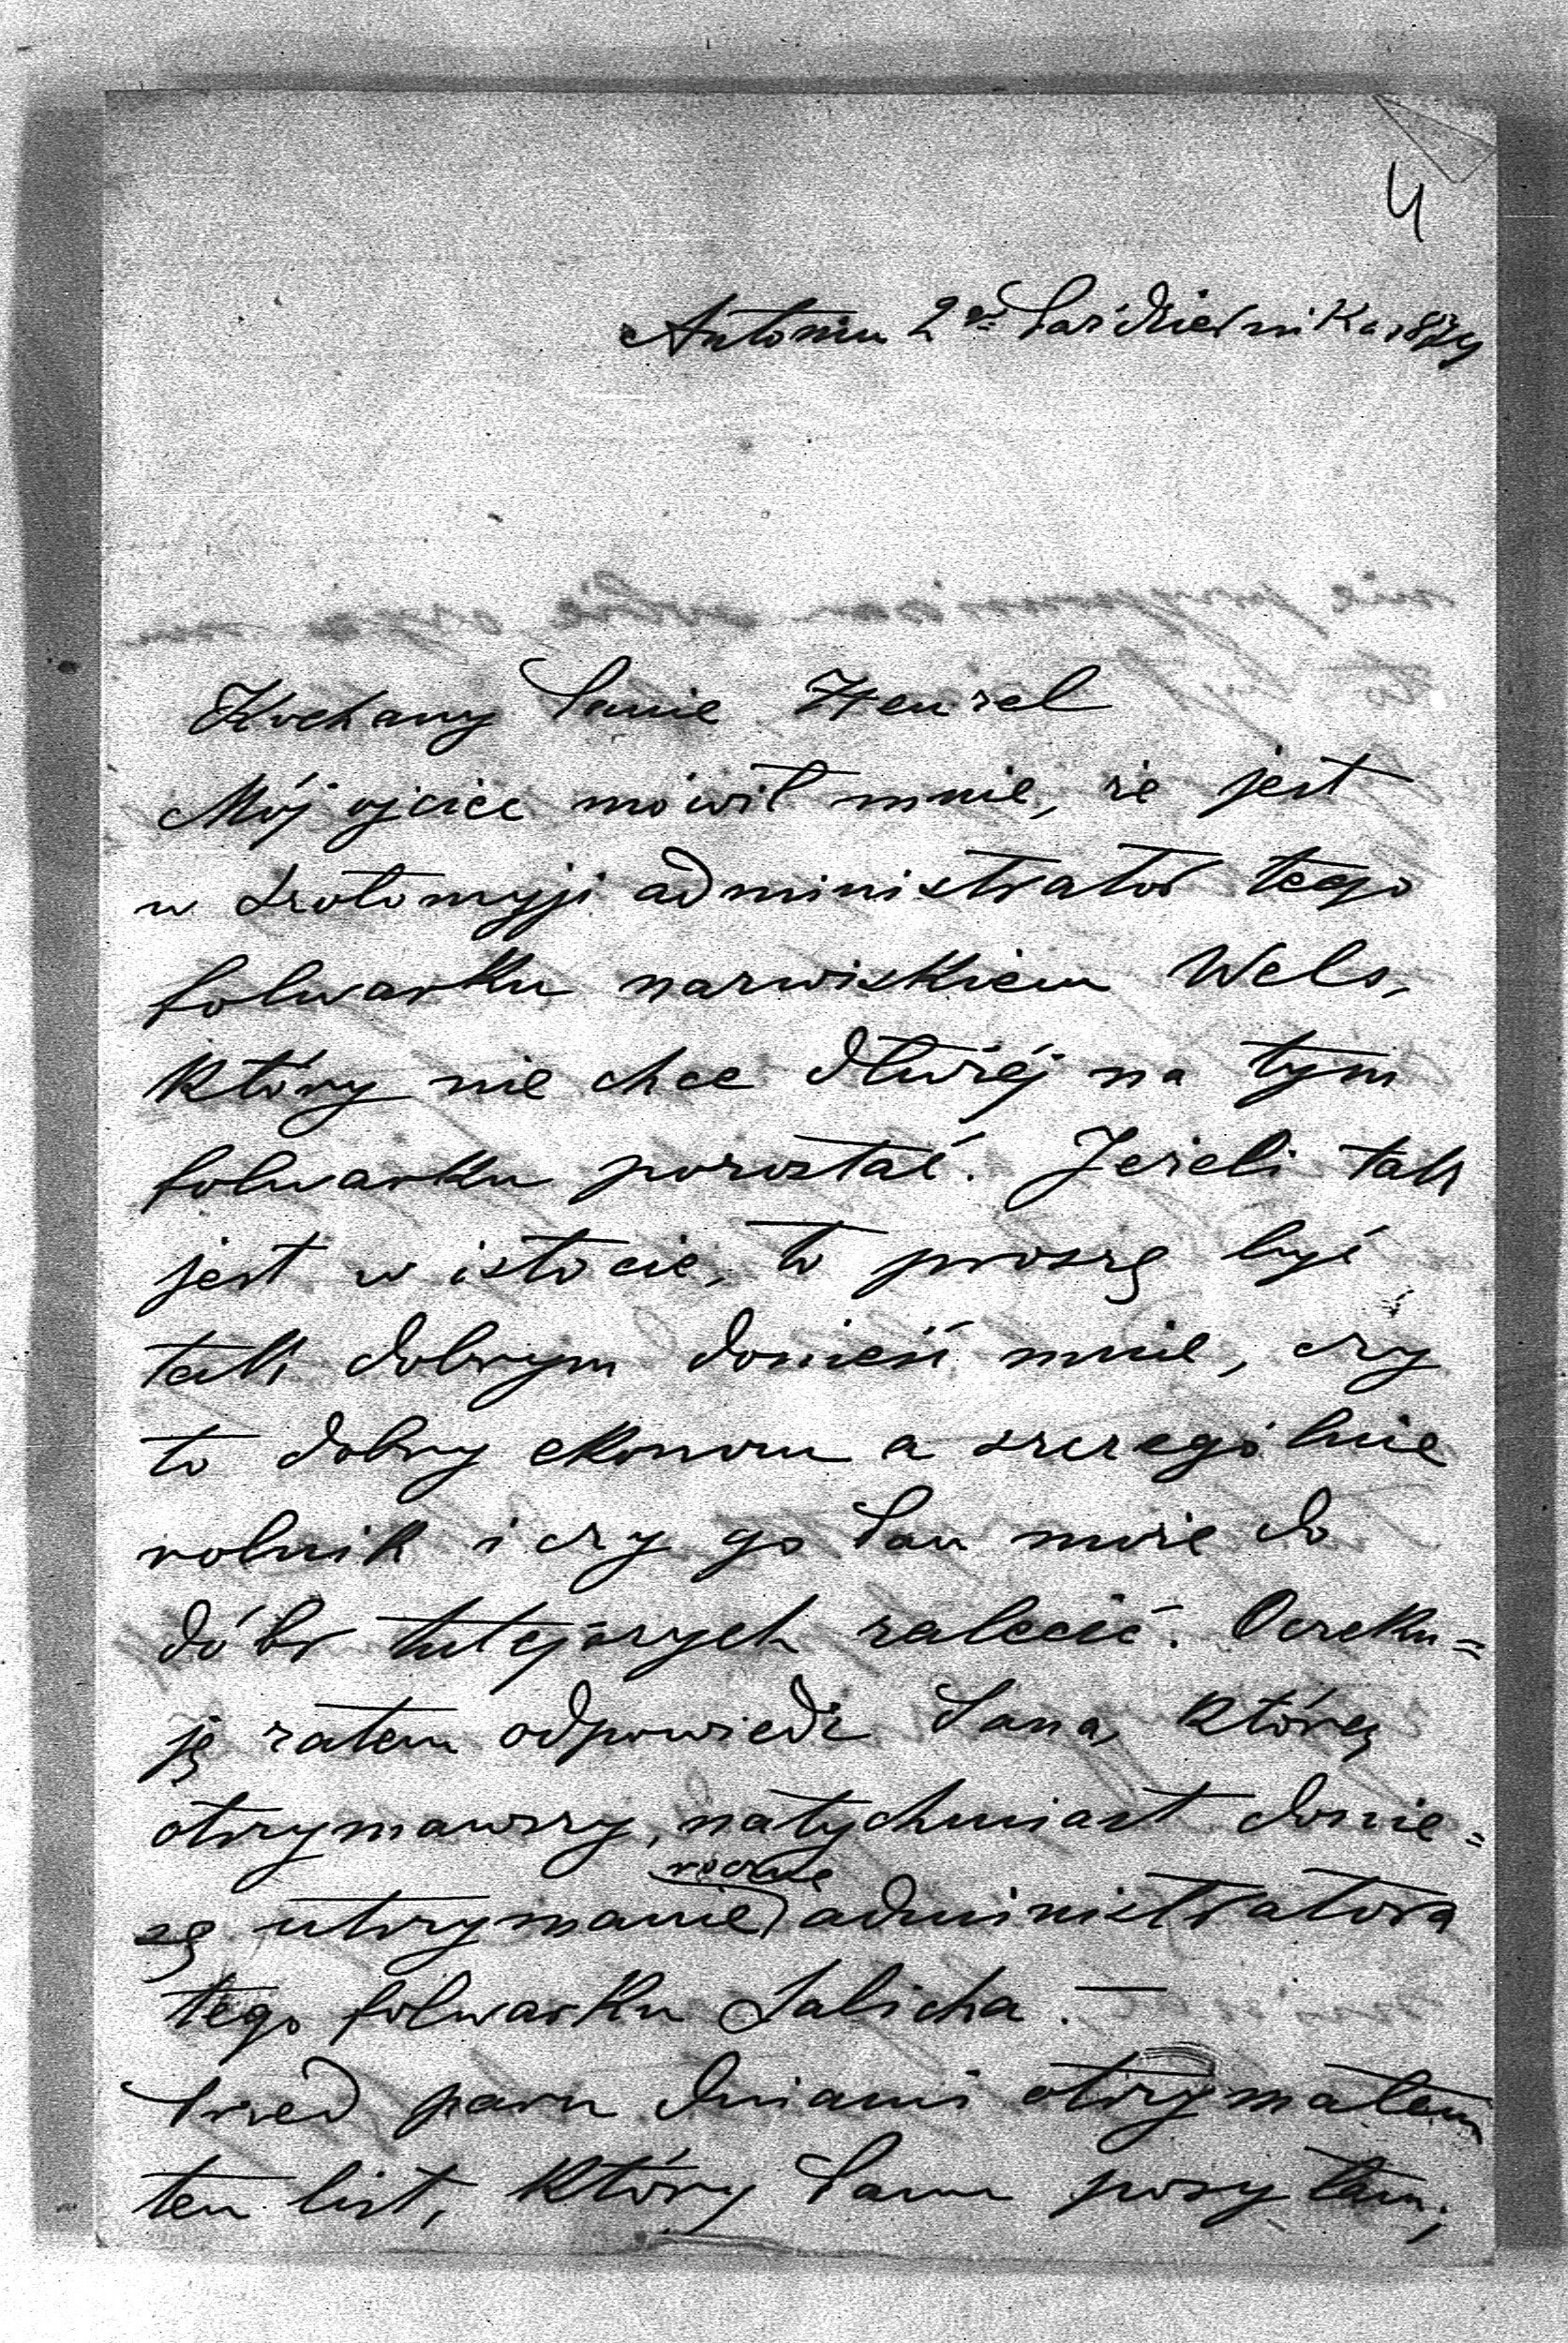 4
Antonin 2go Października 1879
Kochany Panie Henzel
Mój ojciec mówił mnie, że jest
w Szotomyji administrator tego
folwarku nazwiskiem Wels,
który nie chce dłużéj na tym
folwarku pozostać. Jeżeli tak
jest w istocie, to proszę być
tak dobrym donieść mnie, czy
to dobry ekonom a szczególnie
rolnik i czy go Pan może do
dóbr tutejszych zalecić. Oczeku=
ję zatem odpowiedź Pana, którę
otrzymawszy, natychmiast donie=
roczne
sę utrzymanie administratora
tego folwarku Salicha. —
Przed paru dniami otrzymałem
ten list, który Panu posyłam;